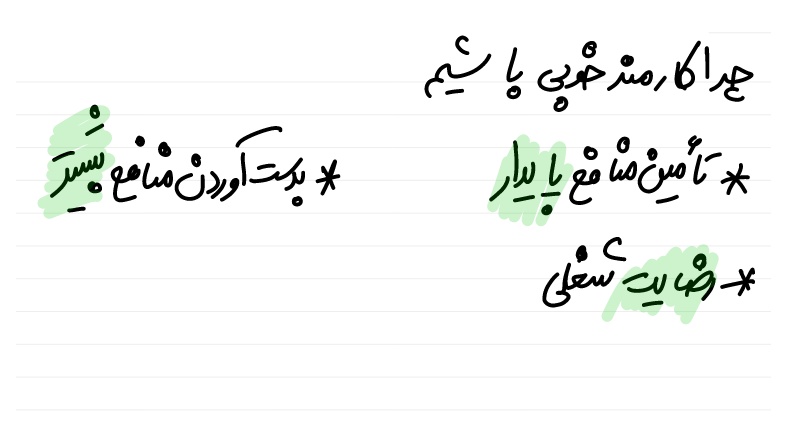 چرا کارمند خوبی باشیم
* تأمین منافع پایدار * بدست آوردن منافع بیشتر
* رضایت شغلی